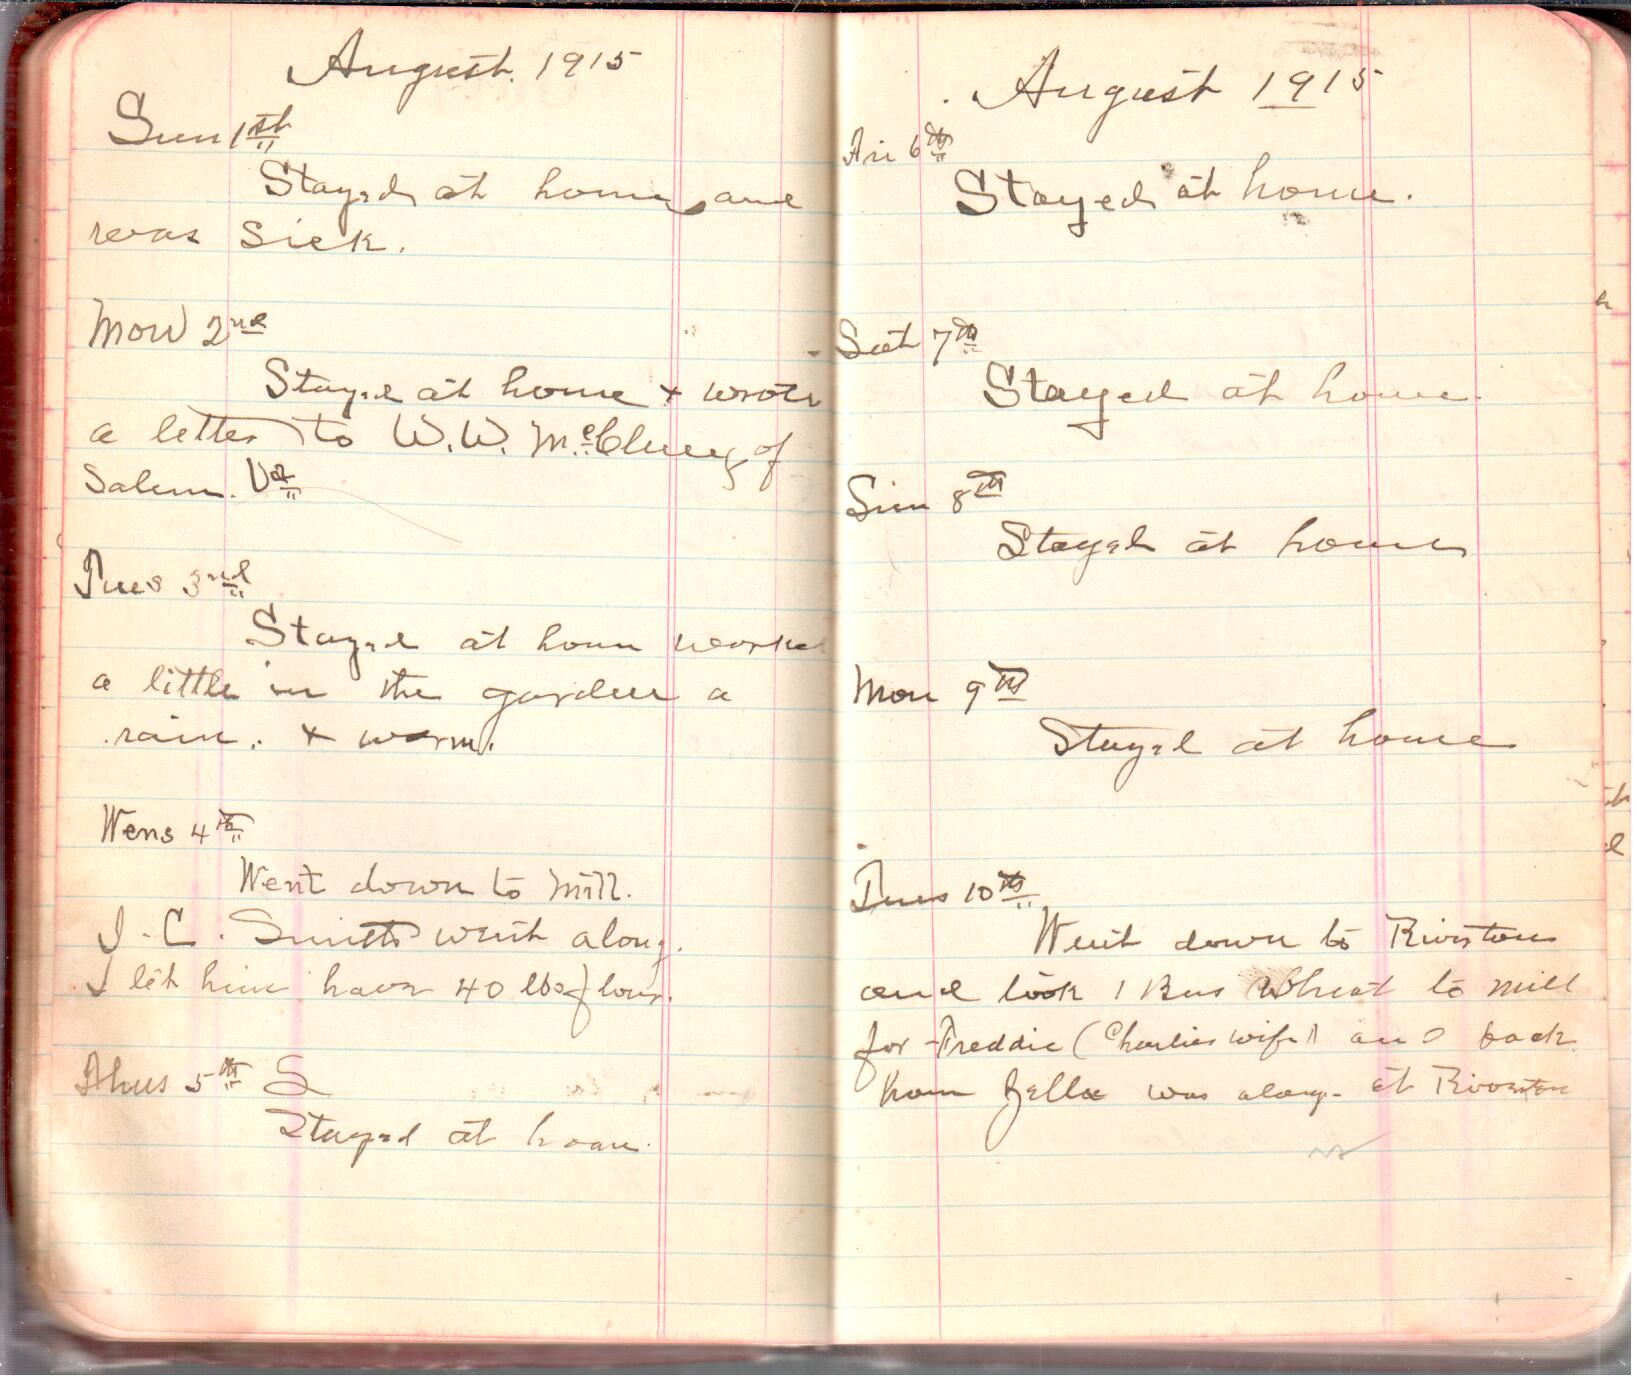 August. 1915
Sun 1st
Stayed at home and
was sick.
Mon 2nd
Stayed at home + wrote
a letter to W.W. McClung of
Salem. Va
Tues 3rd
Stayed at home worked
a little in the garden a
rain. + warm.
Wens 4th
Went down to Mill.
J. C. Smith went along.
I let him have 40 lbs flour.
Thus 5th S
Stayed at home.
August 1915
Fri 6th
Stayed at home.
Sat 7th
Stayed at home.
Sun 8th
Stayed at home
Mon 9th
Stayed at home
Tues 10th
Went down to Riverton
and took 1 Bus Wheat to Mill
for Freddie (Charlies wife) and back
home Zella was along. at Riverton